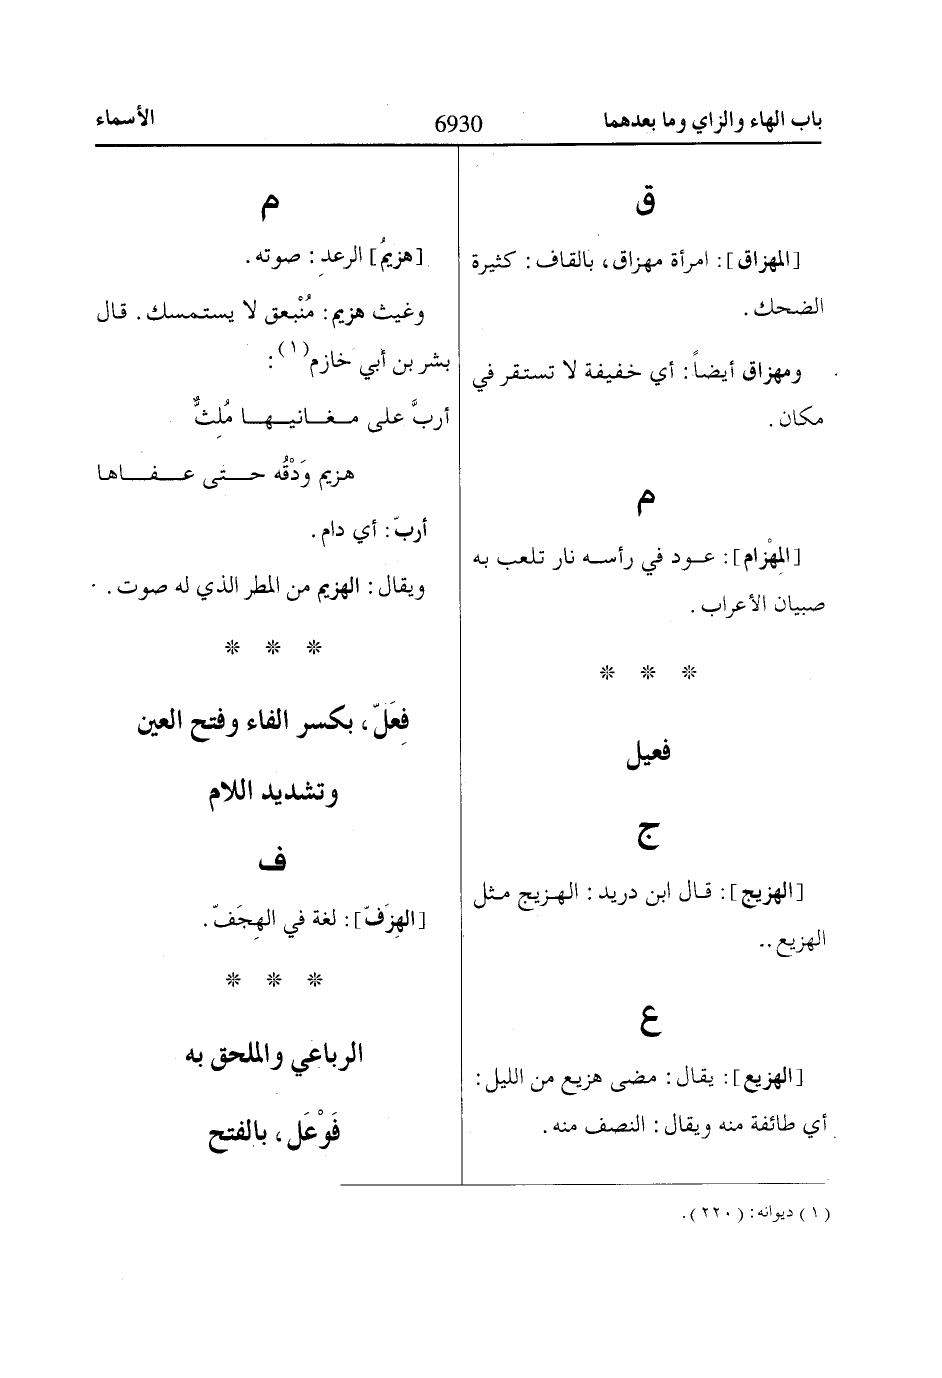 باب الهاء والزاي وما بعدهما 6930 الأسماء
ق
[المهزاق]: امرأة مهزاق، بالقاف: كثيرة
الضحك.
ومهزاق أيضاً: أي خفيفة لا تستقر في
مكان.
م
[المِهْزام]: عود في رأسه نار تلعب به
صبيان الأعراب.
* * *
فعيل
ج
[الهزيج]: قال ابن دريد: الهزيج مثل
الهزيع..
ع
[الهزيع]: يقال: مضى هزيع من الليل:
أي طائفة منه ويقال: النصف منه.
م
[هزيمُ] الرعدِ: صوته.
وغيث هزيم: مُنْبعق لا يستمسك. قال
بشر بن أبي خازم(١):
أربَّ على مغانيها مُلِثٌّ
هزيم وَدْقُه حتى عفاها
أربّ: أي دام.
ويقال: الهزيم من المطر الذي له صوت.
* * *
فِعَلّ، بكسر الفاء وفتح العين
وتشديد اللام
ف
[الهِزَفّ]: لغة في الهِجَفّ.
* * *
الرباعي والملحق به
فَوْعَل، بالفتح
(١) ديوانه: (٢٢٠).